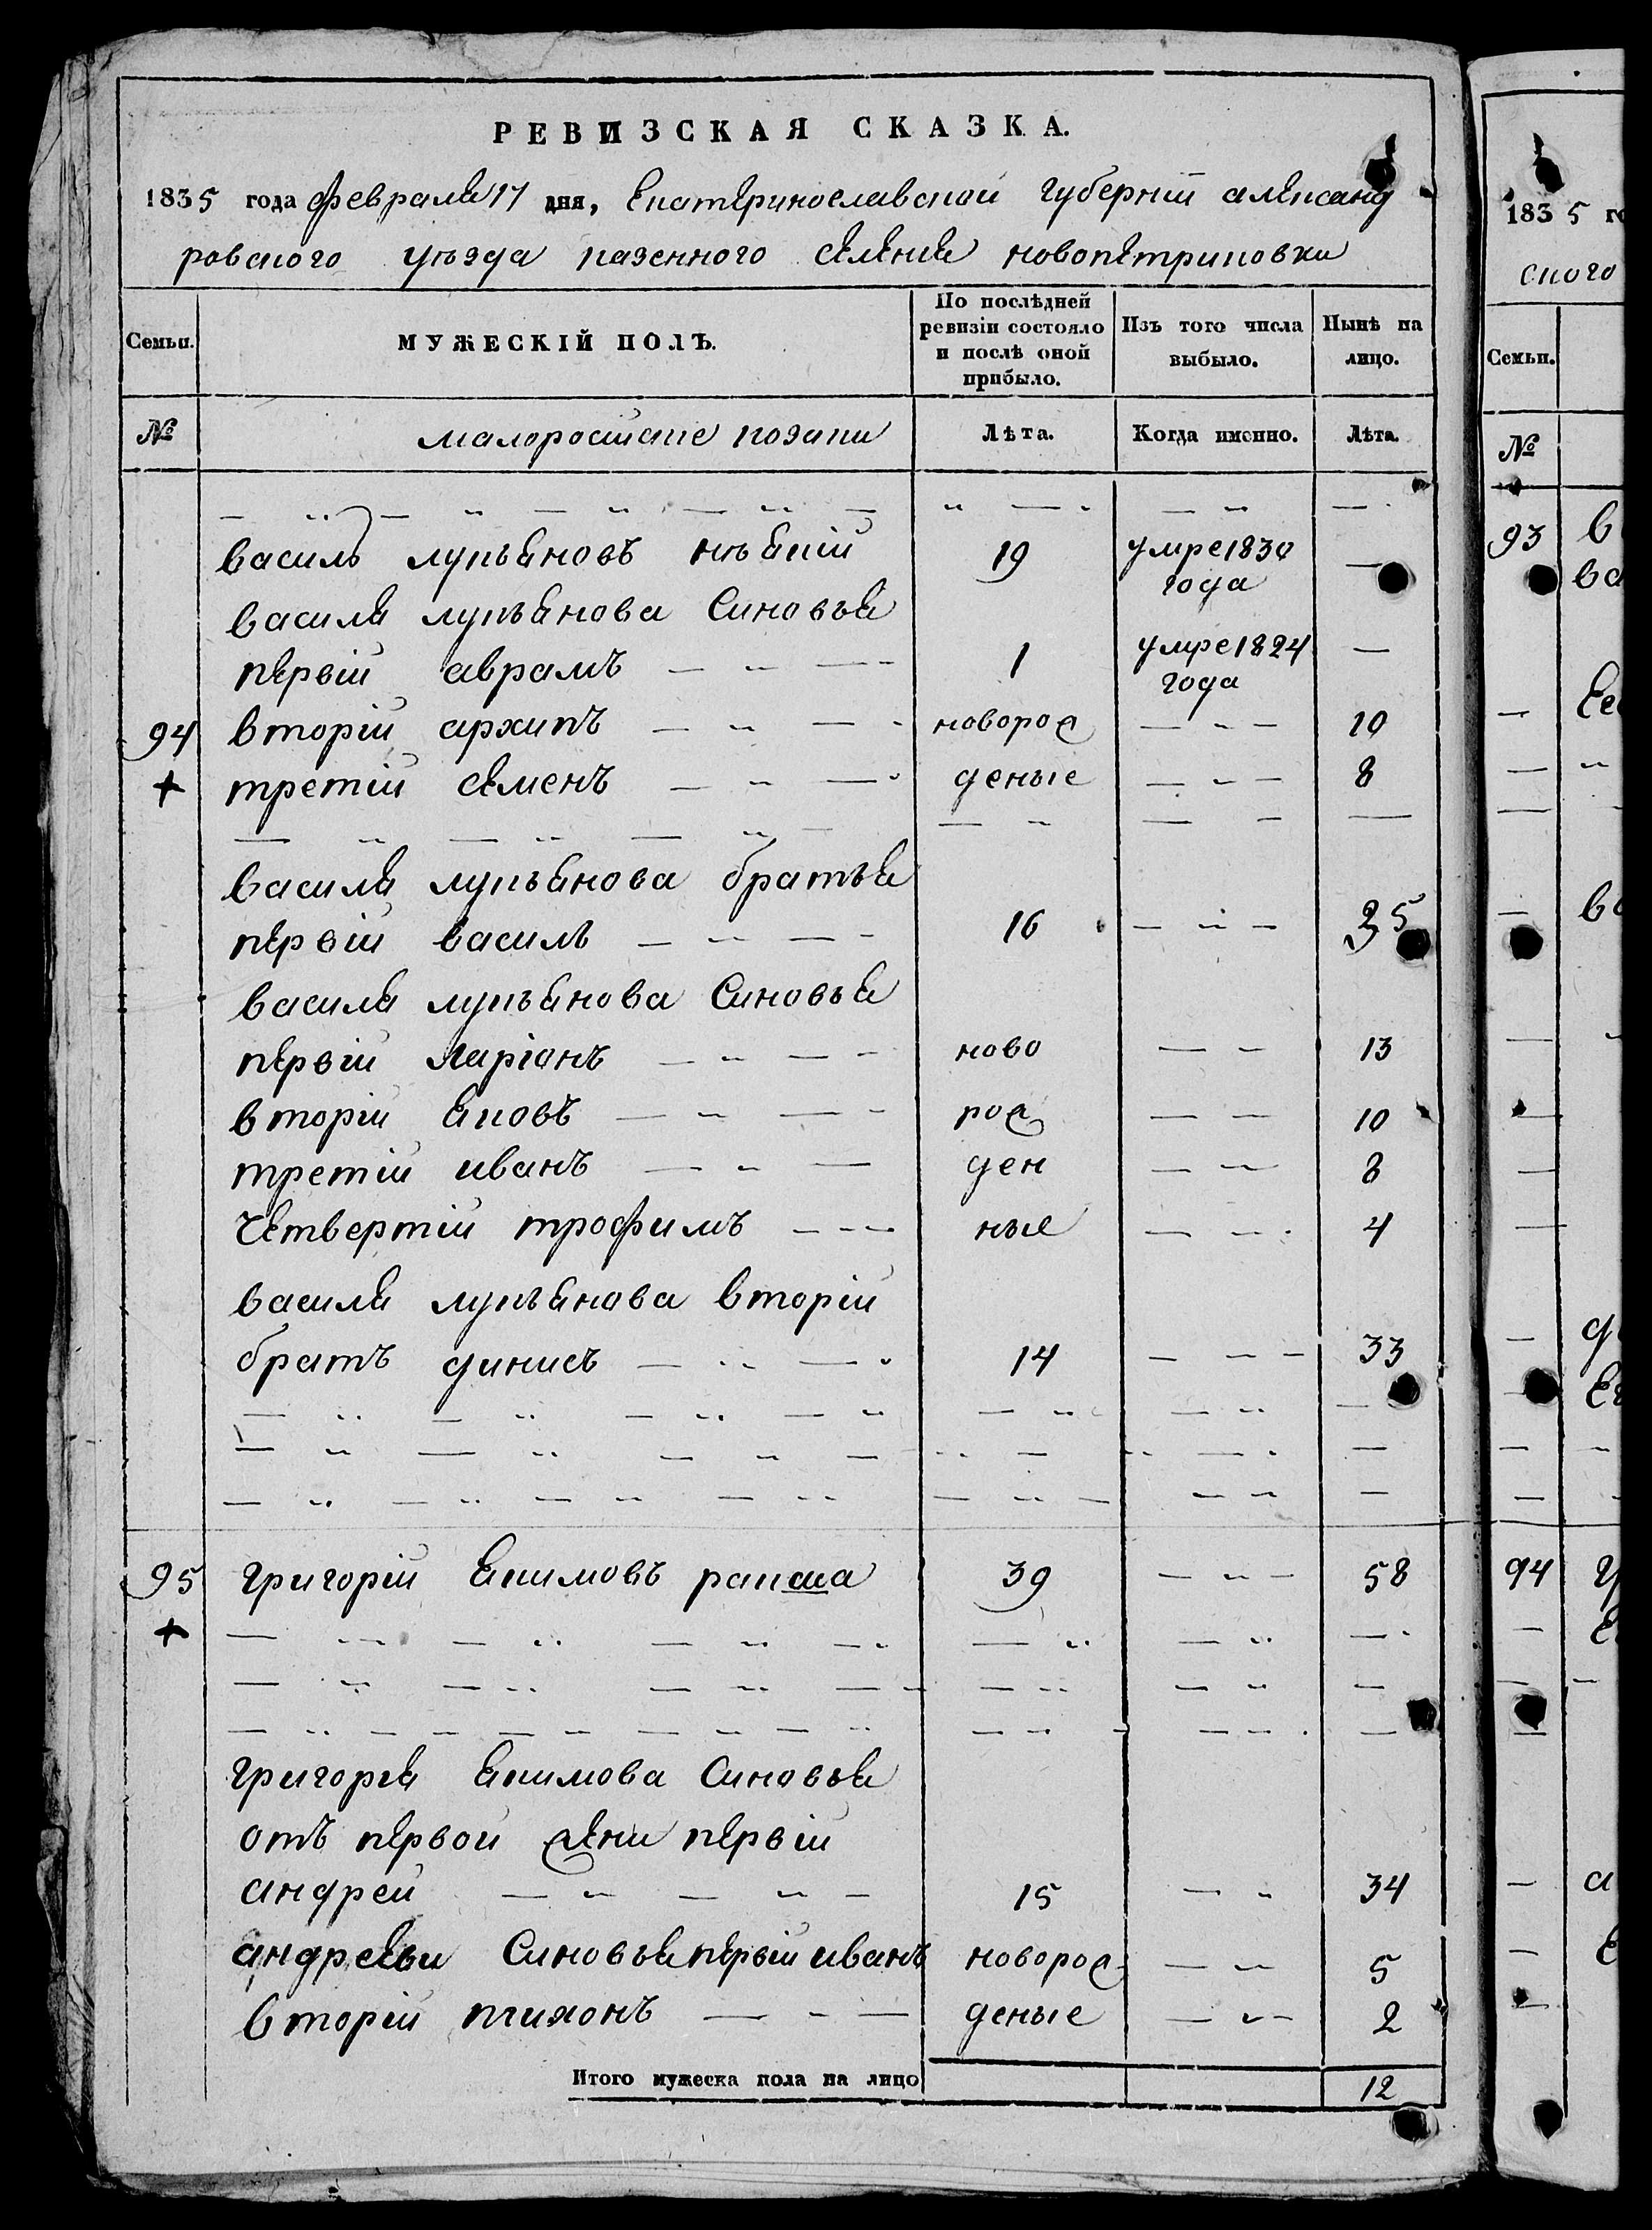 РЕВИЗСКАЯ СКАЗКА.
1835 года февраля 17 дня, Екатеринославской губернии александ
ровского уъзда казенного селения новопетриковки
Семьи.
МУЖЕСКІЙ ПОЛЪ.
По послѣдней ревизіи состояло и послѣ оной прибыло.
Изъ того числа выбыло.
Нынѣ на лицо.
№ малоросийские козаки Лѣта. Когда именно. Лѣта.
василь лукъяновъ 19 умре 1830 года —
василя лукъянова Синовья
первій аврамъ 1 умре 1824 года —
94 вторій архипъ новорож 10
+ третій семенъ деные 8
василя лукъянова братья
первій василь 16 35
василя лукъянова Синовья
первій ларіонъ ново 13
вторій яковъ рож 10
третій иванъ ден 8
четвертій трофимъ ные 4
василя лукъянова вторій
братъ динисъ 14 33
95 григорій якимовъ 39 58
+
григорія якимова Синовья
отъ первой жени первій
андрей 15 34
андреевы Синовья первій иванъ новорож 5
вторій тихонъ деные 2
Итого мужеска пола на лицо 12
1835 го
ского
Семьи.
№
93
94